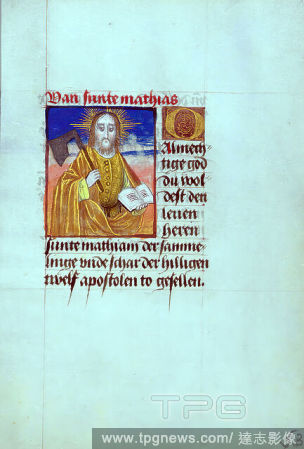 Van sunte mathias
O Almech-
tige god
du wol
dest den
leuen
heren
sunte mathiam der samme-
linge vnde schar der hilligen
twelf apostolen to gesellen.
TPG
www.tpgnews.com/達志影像